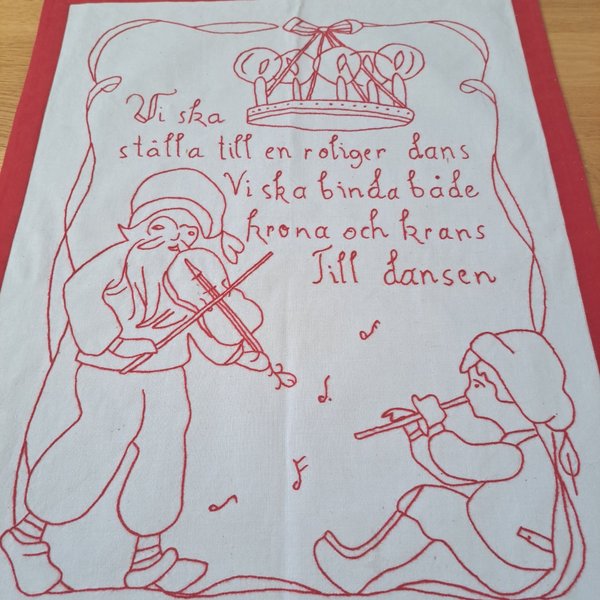 Vi ska
ställa till en roliger dans
Vi ska binda både
krona och krans
Till dansen